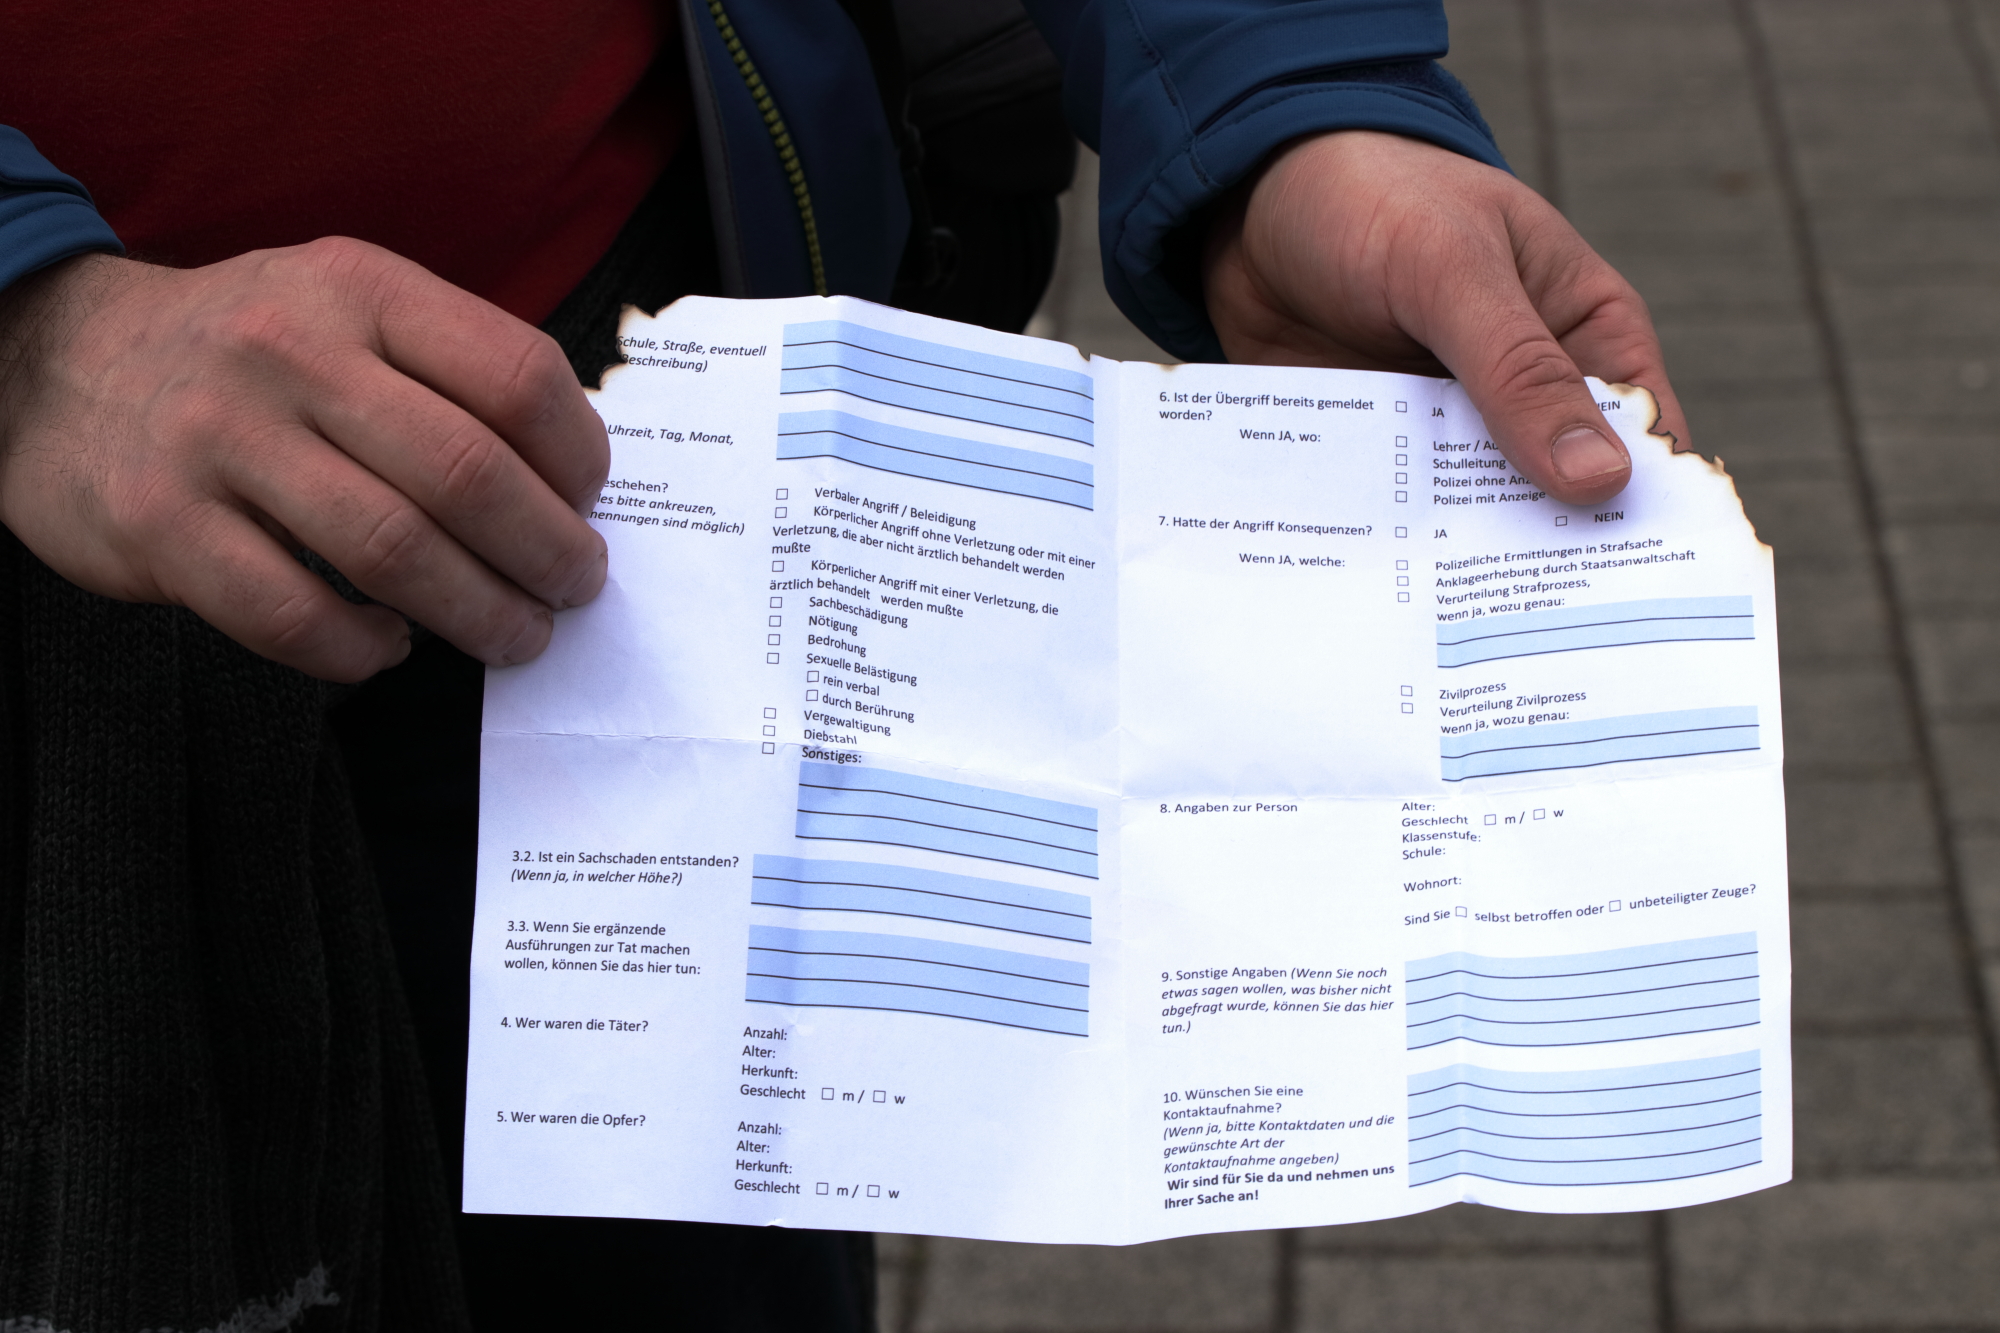 Schule, Straße, eventuell
Beschreibung)
Uhrzeit, Tag, Monat,
eschehen?
les bitte ankreuzen,
nennungen sind möglich)
☐ Verbaler Angriff / Beleidigung
☐ Körperlicher Angriff ohne Verletzung oder mit einer
Verletzung, die aber nicht ärztlich behandelt werden
mußte
☐ Körperlicher Angriff mit einer Verletzung, die
ärztlich behandelt werden mußte
☐ Sachbeschädigung
☐ Nötigung
☐ Bedrohung
☐ Sexuelle Belästigung
☐ rein verbal
☐ durch Berührung
☐ Vergewaltigung
☐ Diebstahl
☐ Sonstiges:
3.2. Ist ein Sachschaden entstanden?
(Wenn ja, in welcher Höhe?)
3.3. Wenn Sie ergänzende
Ausführungen zur Tat machen
wollen, können Sie das hier tun:
4. Wer waren die Täter?
Anzahl:
Alter:
Herkunft:
Geschlecht ☐ m / ☐ w
5. Wer waren die Opfer?
Anzahl:
Alter:
Herkunft:
Geschlecht ☐ m / ☐ w
6. Ist der Übergriff bereits gemeldet ☐ JA EIN
worden?
Wenn JA, wo:
☐ Lehrer /
☐ Schulleitung
☐ Polizei ohne
☐ Polizei mit Anzeige
7. Hatte der Angriff Konsequenzen? ☐ JA ☐ NEIN
Wenn JA, welche:
☐ Polizeiliche Ermittlungen in Strafsache
☐ Anklageerhebung durch Staatsanwaltschaft
☐ Verurteilung Strafprozess,
wenn ja, wozu genau:
☐ Zivilprozess
☐ Verurteilung Zivilprozess
wenn ja, wozu genau:
8. Angaben zur Person
Alter:
Geschlecht ☐ m / ☐ w
Klassenstufe:
Schule:
Wohnort:
Sind Sie ☐ selbst betroffen oder ☐ unbeteiligter Zeuge?
9. Sonstige Angaben (Wenn Sie noch
etwas sagen wollen, was bisher nicht
abgefragt wurde, können Sie das hier
tun.)
10. Wünschen Sie eine
Kontaktaufnahme?
(Wenn ja, bitte Kontaktdaten und die
gewünschte Art der
Kontaktaufnahme angeben)
Wir sind für Sie da und nehmen uns
Ihrer Sache an!